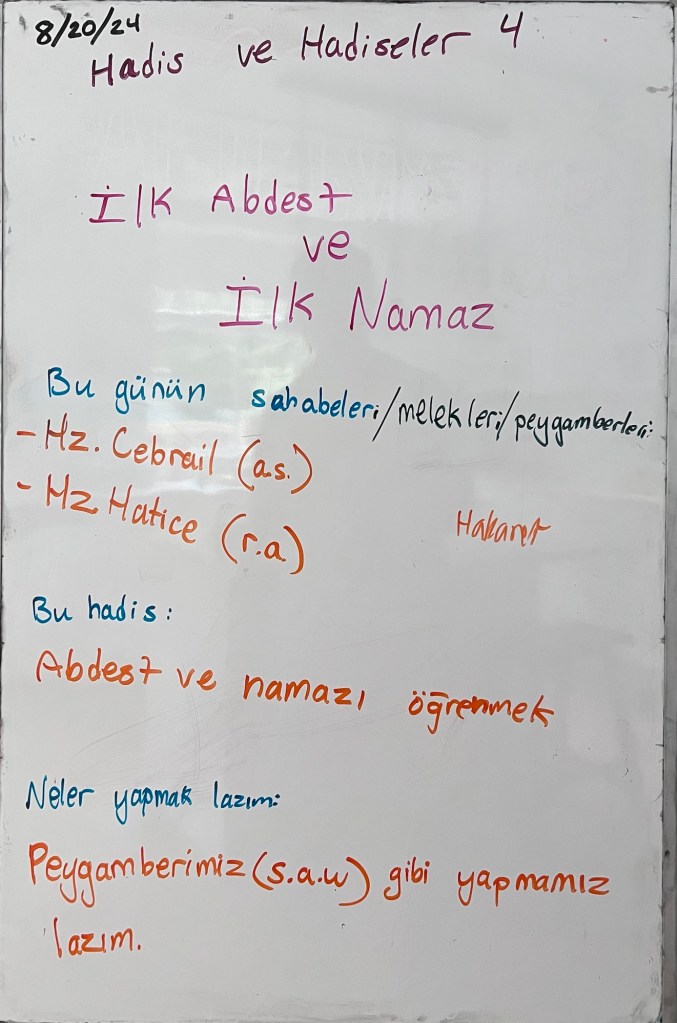 8/20/24
Hadis ve Hadiseler 4
İlk Abdest
ve
İlk Namaz
Bu günün sahabeleri/melekleri/peygamberleri:
- Hz. Cebrail (a.s.)
- Hz Hatice (r.a)
Hakaret
Bu hadis:
Abdest ve namazı öğrenmek
Neler yapmak lazım:
Peygamberimiz (s.a.w) gibi yapmamız
lazım.